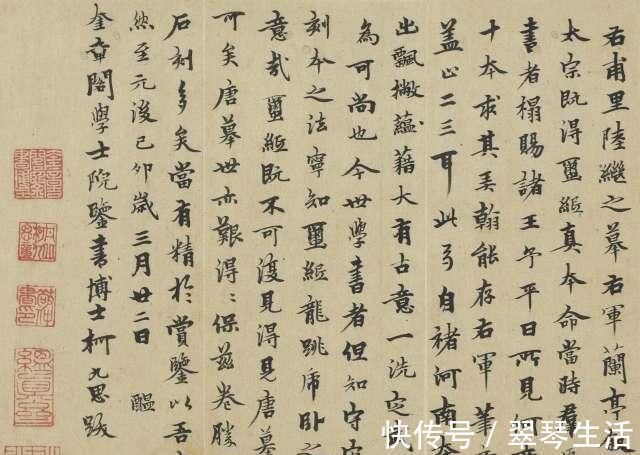 右甫里陸繼之摹右軍蘭亭
太宗既得蠒紙真本命當時
書者搨賜諸王予平日所見何
十本求其弄翰能存右軍筆
盖止二三耳此弓自褚河南
出飄撇蘊藉大有古意一洗定武
為可尚也今世學書者但知守定
刻本之法寧知蠒紙龍跳虎卧之
意哉蠒紙既不可復見得見唐摹
可矣唐摹世亦艱得得保茲卷勝
石刻多矣當有精於賞鑒以吾
然至元後己卯歲三月廿二日 醖
奎章閣學士院鑒書博士柯九思跋
快传号 / 翠琴生活